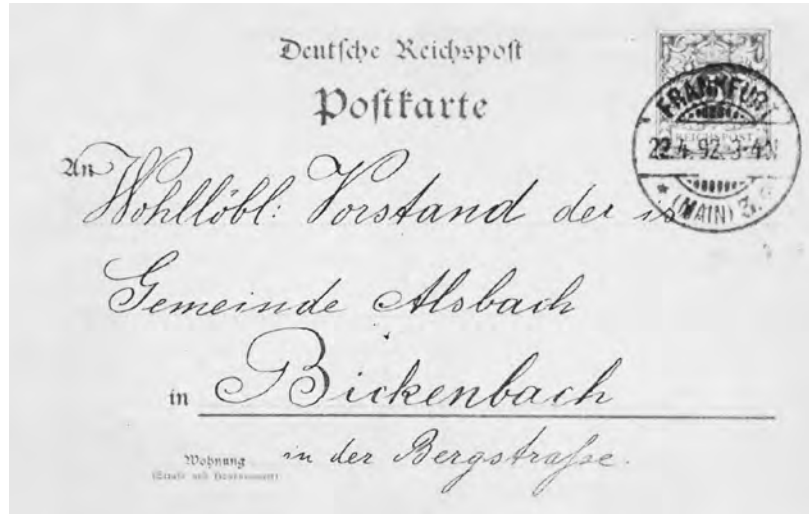 Deutsche Reichspost
Postkarte
FRANKFURT
REICHSPOST
22.4.92.3-4N
* (MAIN)
An
Wohllöbl: Vorstand der is
Gemeinde Alsbach
in Bickenbach
Wohnung
(Straße und Hausnummer)
in der Bergstraße.